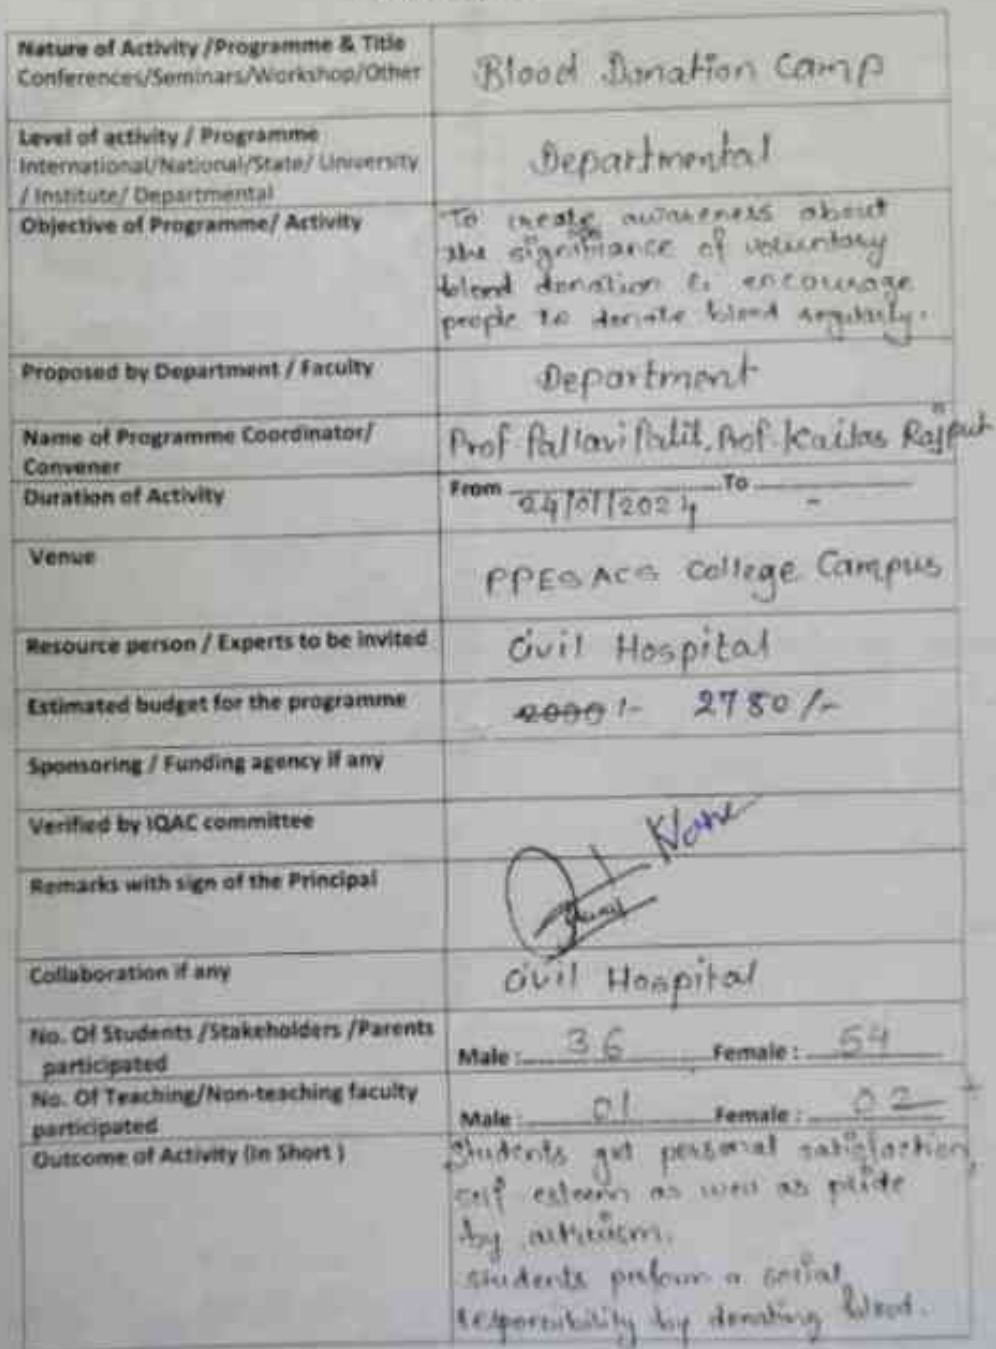 Nature of Activity /Programme & Title
Conferences/Seminars/Workshop/Other
Blood Donation Camp
Level of activity / Programme
International/National/State/ University
/ Institute/ Departmental
Departmental
Objective of Programme/ Activity
To create awareness about
the significance of voluntary
blood donation & encourage
people to donate blood regularly.
Proposed by Department / Faculty
Department
Name of Programme Coordinator/
Convener
Prof. Pallavi Patil, Prof. Kailas Rajput
Duration of Activity
From 24/01/2024 To -
Venue
PPES ACS College Campus
Resource person / Experts to be invited
Civil Hospital
Estimated budget for the programme
2000 /- 2780/-
Sponsoring / Funding agency if any
Verified by IQAC committee
Remarks with sign of the Principal
Collaboration if any
Civil Hospital
No. Of Students /Stakeholders /Parents
participated
Male : 36 Female : 54
No. Of Teaching/Non-teaching faculty
participated
Male : 01 Female : 02
Outcome of Activity (In Short )
Students get personal satisfaction,
self esteem as well as pride
by altruism.
students perform a social
responsibility by donating blood.